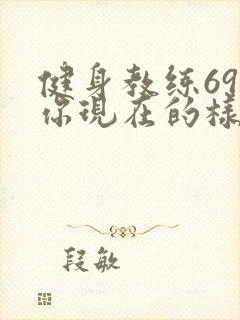 健身教练69
你现在的樣
段敏